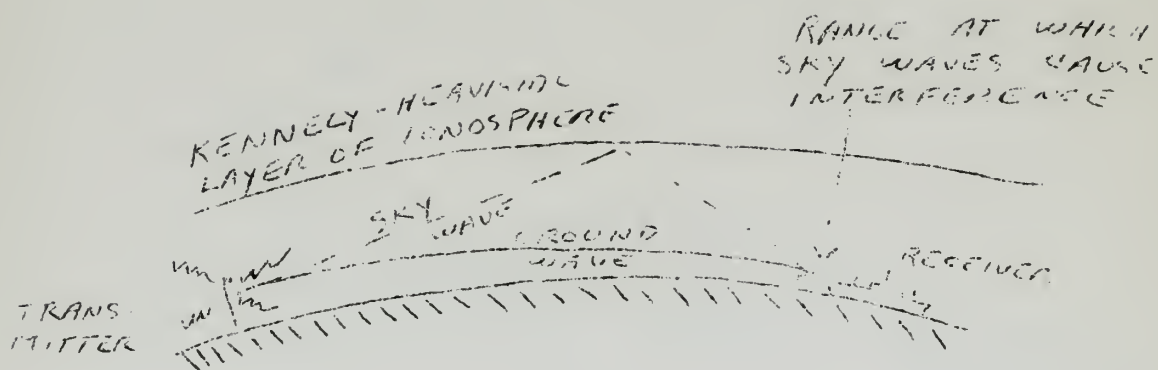 RANGE AT WHICH
SKY WAVES CAUSE
INTERFERENCE
KENNELY-HEAVISIDE
LAYER OF IONOSPHERE
SKY
WAVE
GROUND
WAVE
RECEIVER
TRANS-
MITTER